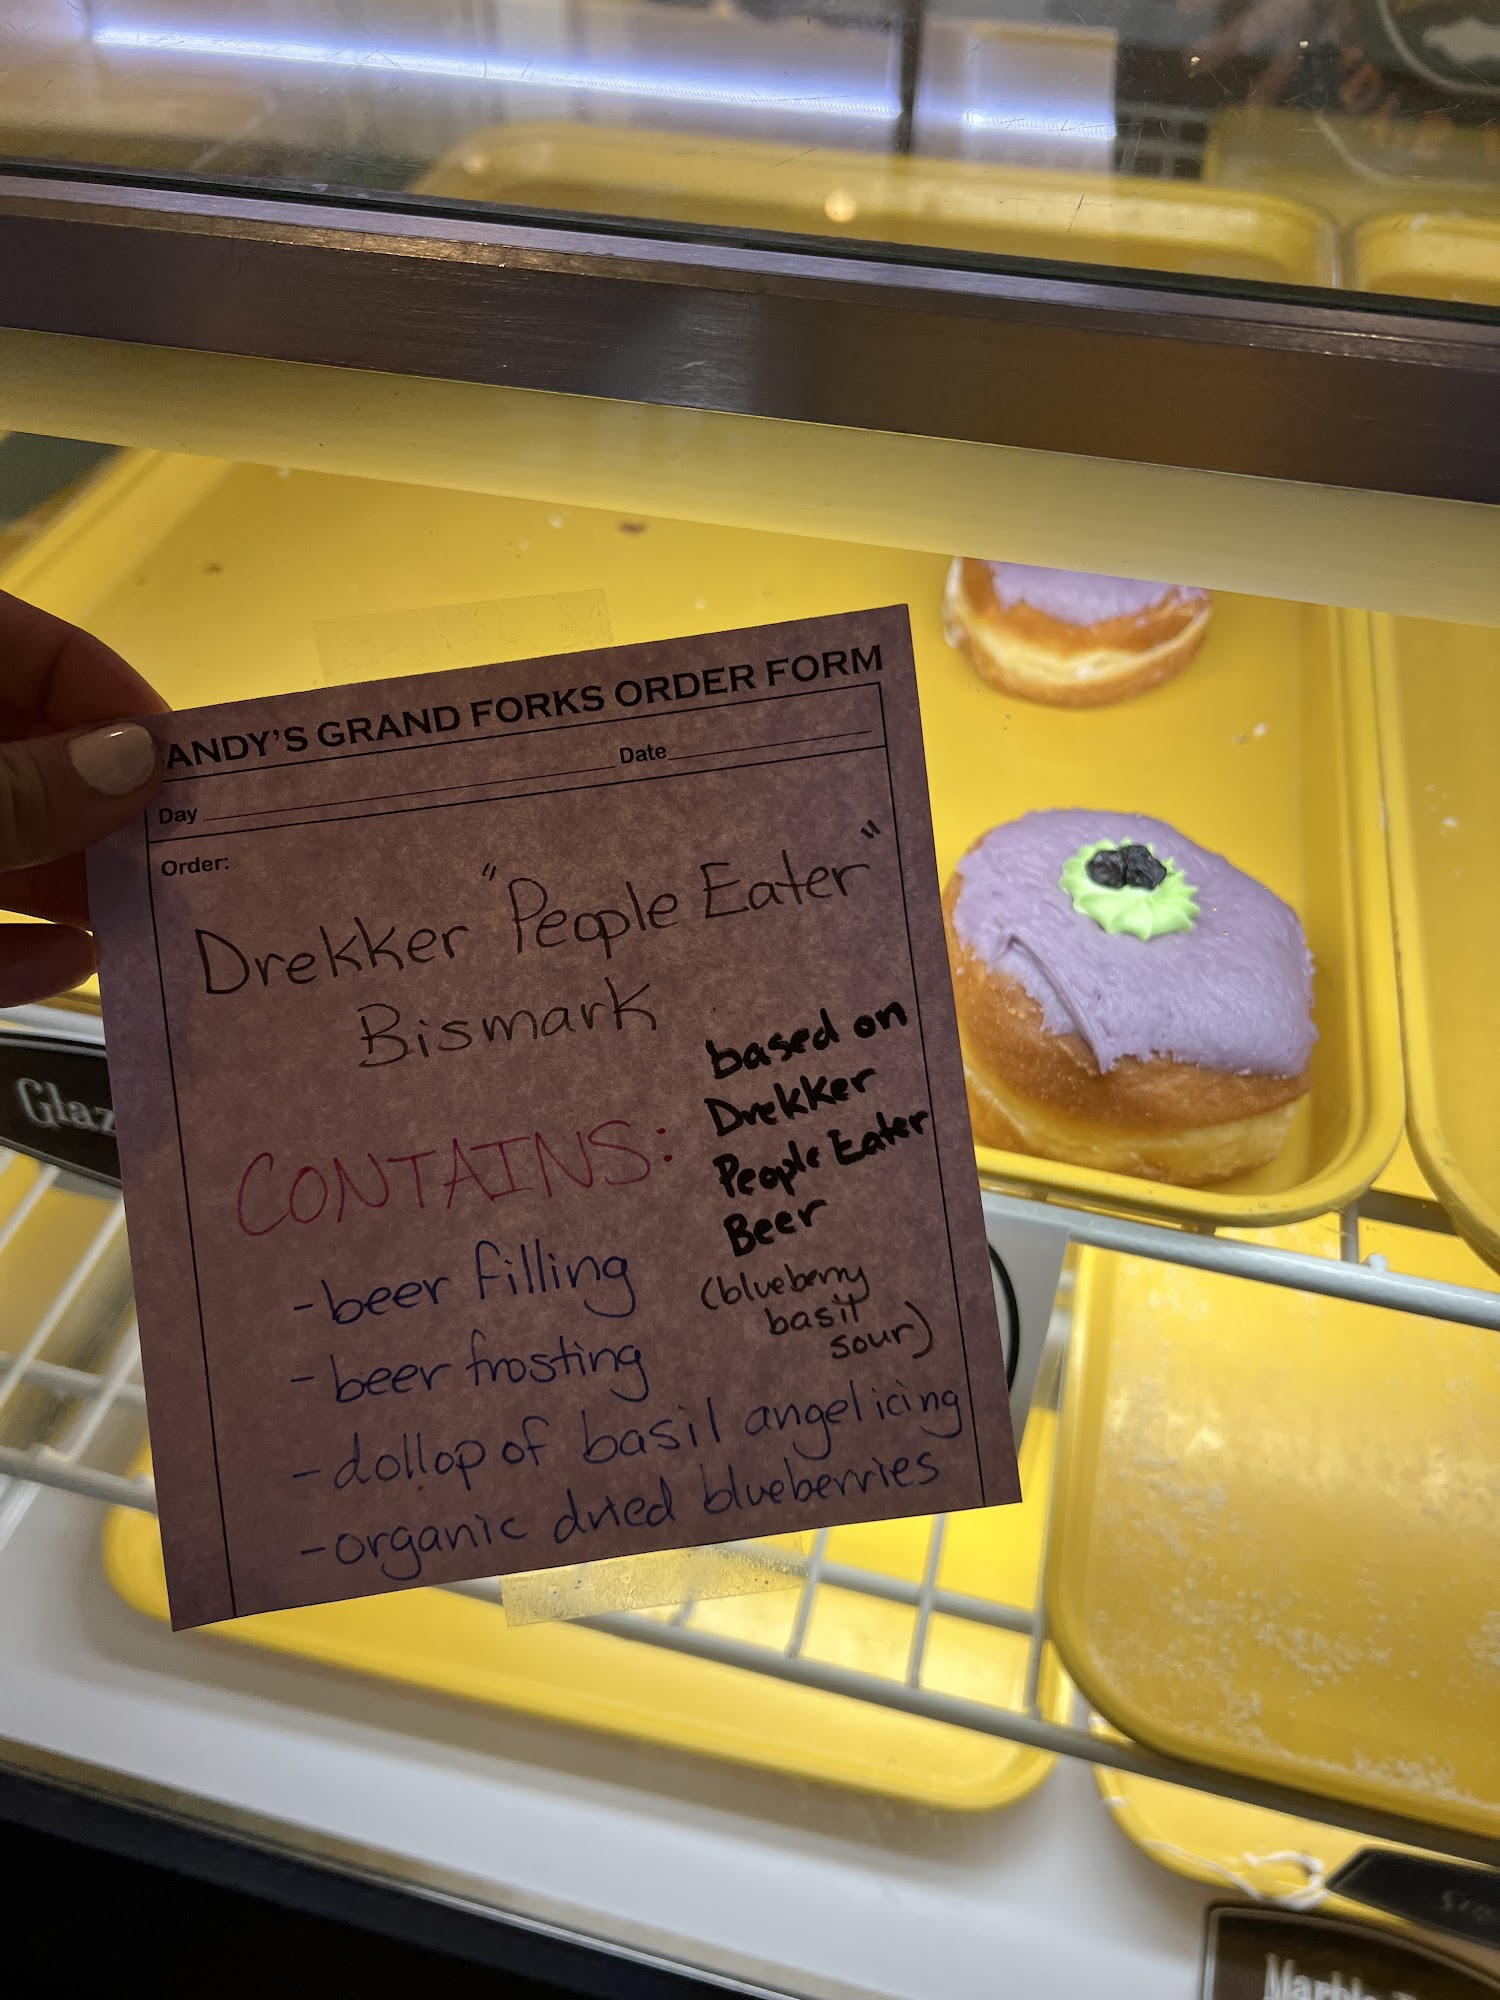 ANDY'S GRAND FORKS ORDER FORM
Day Date
Order:
Drekker "People Eater"
Bismark
based on
Drekker
People Eater
Beer
(blueberry
basil
sour)
CONTAINS:
-beer filling
-beer frosting
-dollop of basil angel icing
-organic dried blueberries
Glaz
Marble